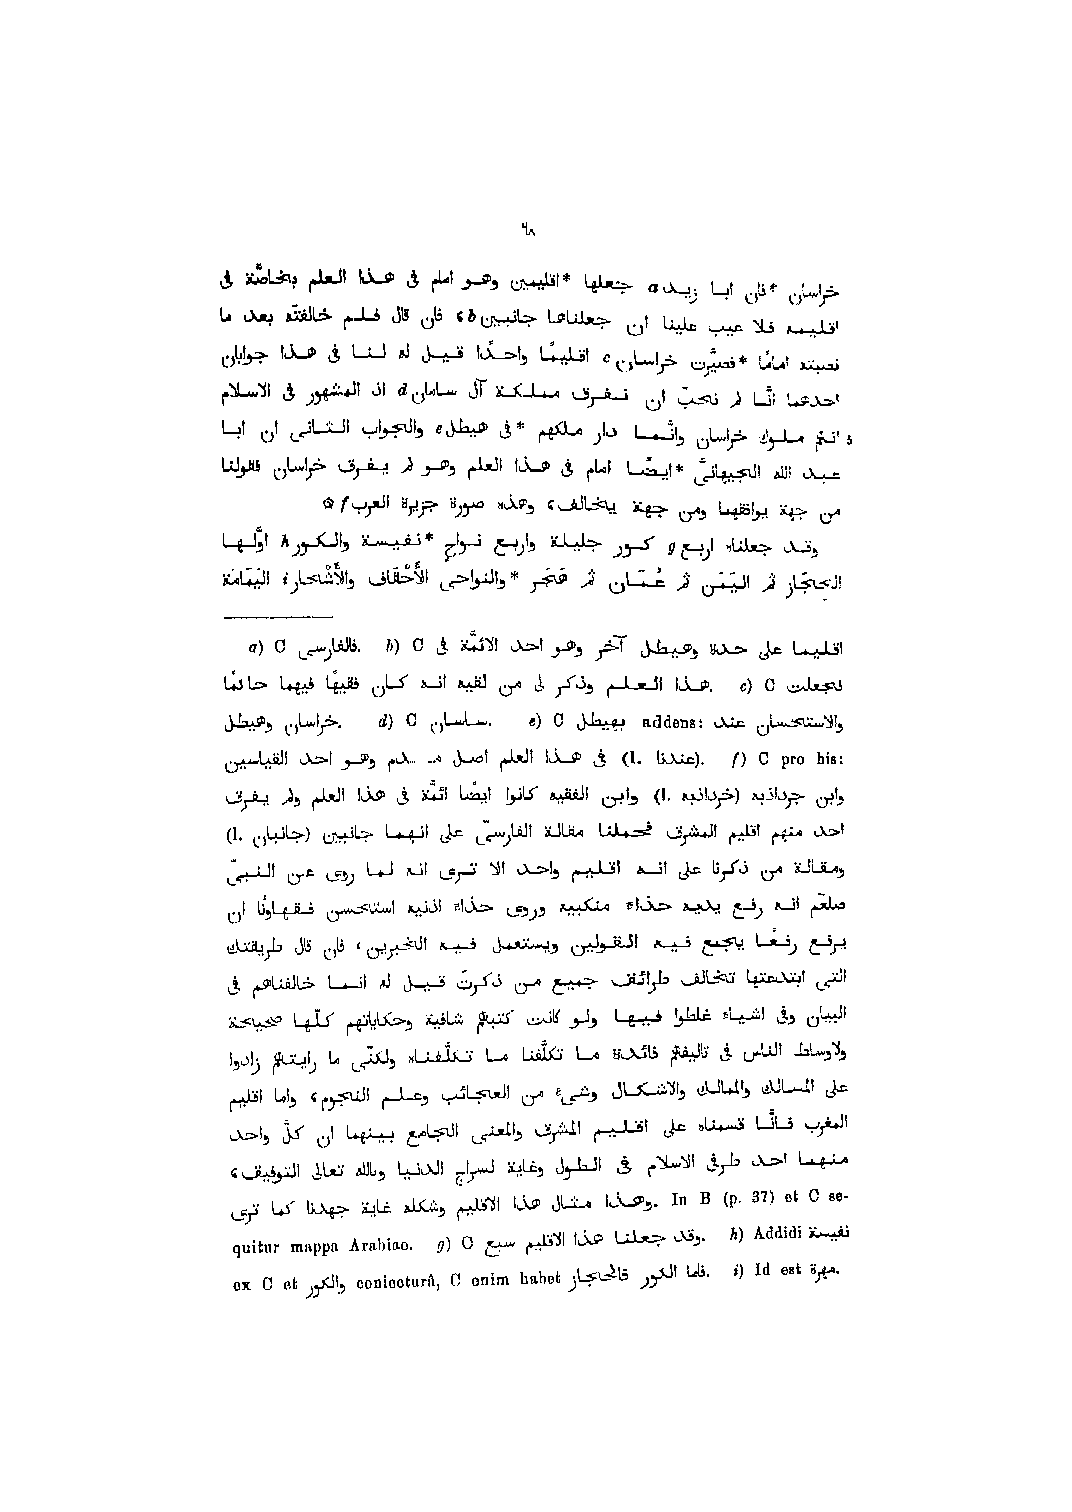 ٦٨
خراسان *فان ابا زيد a جعلها *اقليمين وهو امام فى هذا العلم بخاصّة فى
اقليمه فلا عيب علينا ان جعلناها جانبين b، فان قال فلم خالفته بعد ما
نصبته امامًا *فصيّرت خراسان c اقليمًا واحدًا قيل له لنا فى هذا جوابان
احدهما انّا لم نحبّ ان نفرق مملكة آل سامان d اذ المشهور فى الاسلام
انهم ملوك خراسان وانّما دار ملكهم *فى هيطل e، والجواب الثانى ان ابا
عبد الله الجيهانىّ *ايضًا امام فى هذا العلم وهو لم يفرق خراسان فقولنا
من جهة يوافقهما ومن جهة يخالف، وهذه صورة جزيرة العرب f ۞
وقد جعلناه اربع g كور جليلة واربع نواح *نفيسة والكور h اوّلها
الحجَاز ثم اليَمَن ثم عُمَان ثم هَجَر *والنواحى الأَحْقاف والأَشْحار i، اليَمَامَة
a) C فالفارسى. b) C اقليما على حدة وهيطل آخر وهو احد الائمّة فى
هذا العلم وذكر لى من لقيه انه كان فقيهًا فيهما حاتمًا. c) C فجعلت
خراسان وهيطل. d) C ساسان. e) C بهيطل addens: والاستحسان عند
(l. عندنا) فى هذا العلم اصل وهو احد القياسين. f) C pro his:
وابن جرداذبه (l. خرداذبه) وابن الفقيه كانوا ايضًا ائمّة فى هذا العلم ولم يفرق
احد منهم اقليم المشرق فحملنا مقالة الفارسىّ على انهما جانبين (l. جانبان)
ومقالة من ذكرنا على انه اقليم واحد الا ترى انه لما روى عن النبىّ
صلعّم انه رفع يديه حذاء منكبيه وروى حذاء اذنيه استحسن فقهاونا ان
يرفع رفعًا يجمع فيه القولين ويستعمل فيه الخبرين، فان قال طريقتك
التى ابتدعتها تخالف طرائف جميع من ذكرتَ قيل له انما خالفناهم فى
البيان وفى اشياء غلطوا فيها ولو كانت كتبهم شافية وحكاياتهم كلّها صحيحة
ولاوساط الناس فى تاليفهم فائدة ما تكلّفنا ما تكلّفناه ولكنّى ما رايتهم زادوا
على المسالك والممالك والاشكال وشىء من العجائب وعلم النجوم، واما اقليم
المغرب فانّا قسمناه على اقليم المشرق والمعنى الجامع بينهما ان كلّ واحد
منهما احد طرفى الاسلام فى الطول وغاية لسراج الدنيا وبالله تعالى التوفيق،
وهذا مثال هذا الاقليم وشكله غاية جهدنا كما ترى. In B (p. 37) et C se-
quitur mappa Arabiae. g) C وقد جعلنا هذا الاقليم سبع. h) Addidi نفيسة
ex C et والكور coniecturâ, C enim habet فاما الكور فالحجاز. i) Id est مهرة.